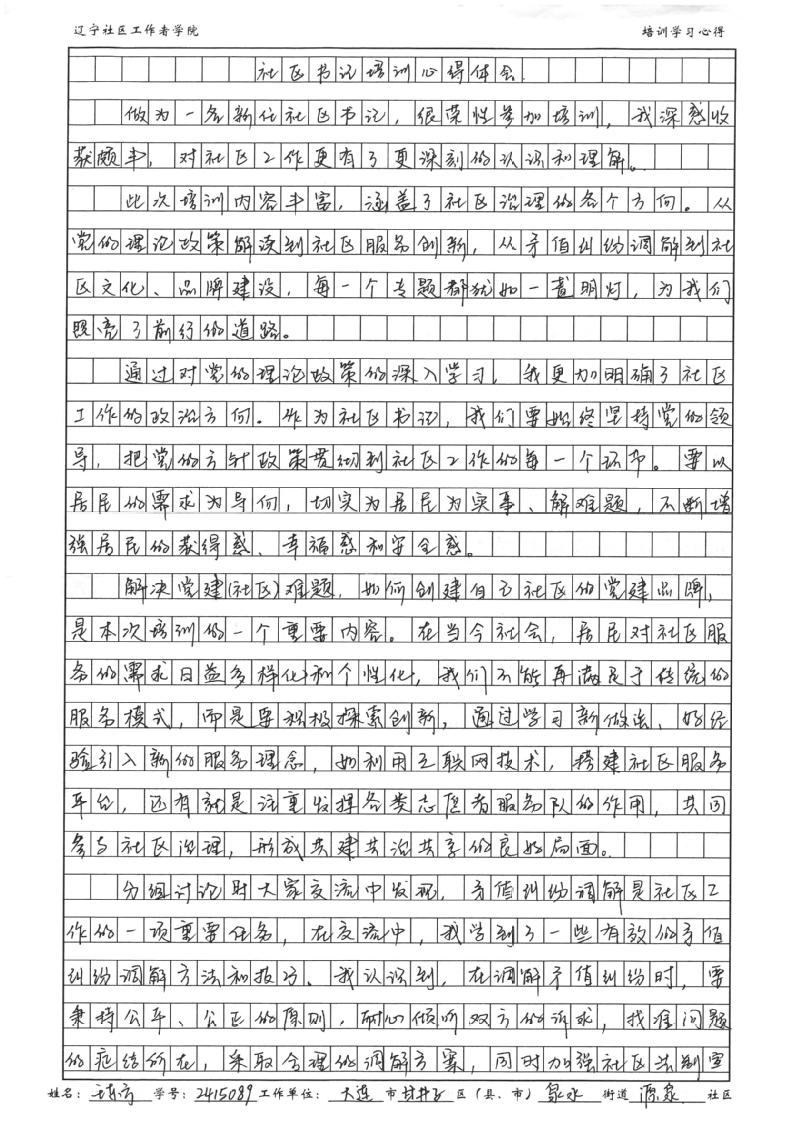 辽宁社区工作者学院 培训学习心得
社区书记培训心得体会
做为一名新任社区书记，很荣幸参加培训，我深感收
获颇丰，对社区工作更有了更深刻的认识和理解。
此次培训内容丰富，涵盖了社区治理的各个方向。从
党的理论政策解读到社区服务创新，从矛盾纠纷调解到社
区文化、品牌建设，每一个专题都犹如一盏明灯，为我们
照亮了前行的道路。
通过对党的理论政策的深入学习，我更加明确了社区
工作的政治方向。作为社区书记，我们要始终坚持党的领
导，把党的方针政策贯彻到社区工作的每一个环节。要以
居民的需求为导向，切实为居民为实事、解难题，不断增
强居民的获得感、幸福感和安全感。
解决党建(社区)难题，如何创建自己社区的党建品牌，
是本次培训的一个重要内容。在当今社会，居民对社区服
务的需求日益多样化和个性化，我们不能再满足于传统的
服务模式，而是要积极探索创新，通过学习新做法、好经
验引入新的服务理念，如利用互联网技术，搭建社区服务
平台，还有就是注重发挥各类志愿者服务队的作用，共同
参与社区治理，形成共建共治共享的良好局面。
分组讨论时大家交流中发现，矛盾纠纷调解是社区工
作的一项重要任务，在交流中，我学到了一些有效的矛盾
纠纷调解方法和技巧。我认识到，在调解矛盾纠纷时，要
秉持公平、公正的原则，耐心倾听双方的诉求，找准问题
的症结所在，采取合理的调解方案，同时加强社区法制宣
姓名： 学号：2415089 工作单位：大连 市 甘井子 区（县、市） 泉水 街道 源泉 社区